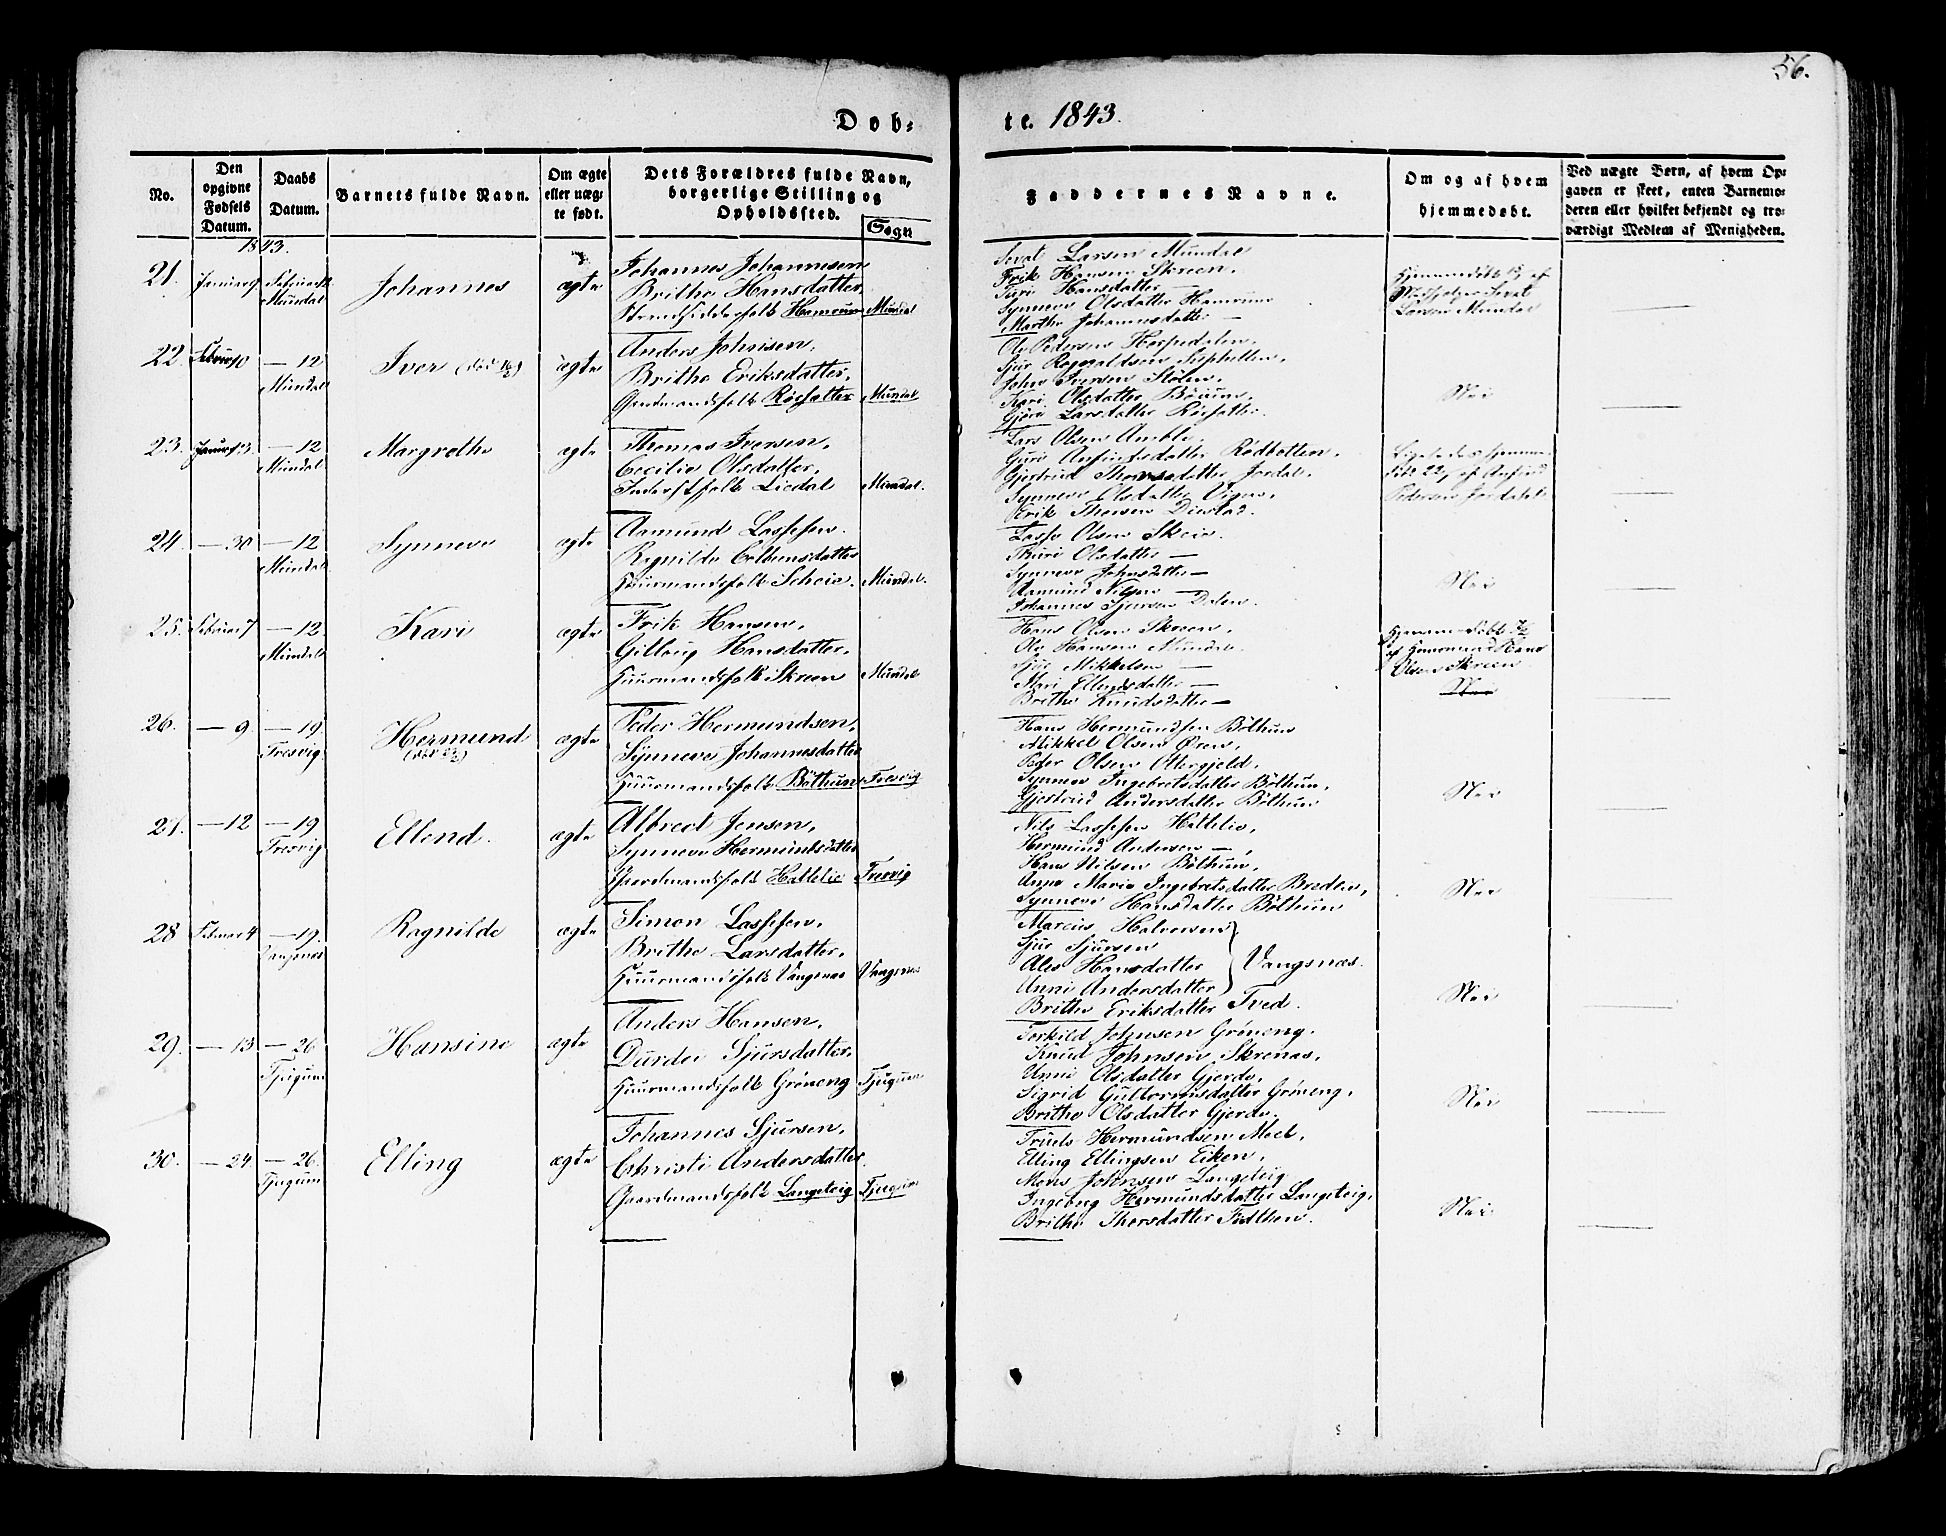 56.
Døb-
te. 1843.
No.
Den opgivne Fødsels Datum.
Daabs Datum.
Barnets fulde Navn.
Om ægte eller uægte født.
Dets Forældres fulde Navn, borgerlige Stilling og Opholdssted.
Sogn
Faddernes Navne.
Om og af hvem hjemmedøbt.
Ved uægte Børn, af hvem Opgaven er skeet, enten Barnemoderen eller hvilket bekjendt og troværdigt Medlem af Menigheden.
1843.
21.
Mundal
Johannes
ægte
Johannes Johannesen
Brithe Hansdatter
Strandsidderfolk Hamrum
Mundal
Sevat Larsen Mundal
Erik Hansen Skreen.
Turi Hansdatter —
Synneve Olsdatter Hamrum
Marthe Johannesdatter —
Sevat
Larsen Mundal
22
Februar 10
— 12
Mundal
Iver
ægte
Anders Johnsen,
Brithe Eriksdatter,
Gaardmandsfolk Røesatter
Mundal
Ole Pedersen Herpedalen,
Sjur Rognaldsen
John Iversen Stølen,
Kari Olsdatter Bøium,
Gjøri Larsdatter Røesatter.
Nei
23.
Januar 13.
— 12
Mundal
Margrethe
ægte
Thomas Iversen,
Cecilie Olsdatter,
Inderstfolk Liedal
Mundal.
Lars Olsen Amble.
Guri Anfindsdatter Rødbotten.
Gjertrud Thomasdatter Jordal.
Synneve Olsdatter Vigum,
Erik Thorsen Diestad.
Ligeledes hjemmedøbt 22 af Anfind
Pedersen Jordahl
24.
— 30
— 12
Mundal
Synneve
ægte
Aamund Lassesen.
Ragnilde Colbensdatter
Huusmandsfolk Scheie.
Mundal.
Lasse Olsen Skeie.
Thuri Olsdatter —
Synneve Johnsdatter —
Aamund Nilsen —
Johannes Sjursen Dalen.
Nei
25.
Februar 7
— 12.
Mundal
Kari
ægte
Erik Hansen,
Gitlaug Hansdatter,
Huusmandsfolk Skreen
Mundal
Hans Olsen Skreen,
Ole Hansen Mundal.
Sjur Mikkelsen —
Mari Ellendsdatter —
Brithe Knudsdatter —
Hjemmedøbt
af Huusmand Hans
Olsen Skreen
Nei
26.
— 9.
— 19.
Fresvig
Hermund
ægte
Peder Hermundsen,
Synneve Johannesdatter
Huusmandsfolk Bøthun
Fresvig
Hans Hermundsen Bøthun
Mikkel Olsen Øren,
Peder Olsen Ottergjeld.
Synneve Ingebretsdatter Bøthun,
Gjertrud Andersdatter Bøthun
Nei
27.
— 12
— 19.
Fresvig
Ellend.
ægte
Albrect Jensen,
Synneve Hermundsdatter
Gaardmandsfolk Hattelie
Fresvig
Nils Lassesen Hattelie,
Hermund Andersen —,
Hans Nilsen Bøthun,
Anne Marie Ingebretsdatter Breden,
Synneve Hansdatter Bøthun
Nei
28
Februar 4
— 19.
Vangsnæs
Ragnilde
ægte
Simon Lassesen,
Brithe Larsdatter,
Huusmandsfolk Vangsnæs
Vangsnæs
Marcus Halvorsen
Sjur Sjursen
Ales Hansdatter
Anni Andersdatter
Vangsnæs.
Brithe Eriksdatter Tved.
Nei
29.
— 13
— 26
Tjugum
Hansine
ægte
Anders Hansen,
Durdei Sjursdatter,
Huusmandsfolk Grøneng
Tjugum
Torkild Johnsen Grøneng,
Knud Johnsen Skrenæs,
Anni Olsdatter Gjerde,
Sigrid Guttormsdatter Grøneng,
Brithe Olsdatter Gjerde.
Nei
30.
— 24.
— 26.
Tjugum
Elling
ægte
Johannes Sjursen,
Christi Andersdatter
Gaardmandsfolk Langeteig
Tjugum
Truels Hermundsen Meel,
Elling Ellingsen Eiken,
Mons Johnsen Langeteig
Ingeborg Hermundsdatter Langeteig,
Brithe Thorsdatter Fedthun.
Nei.